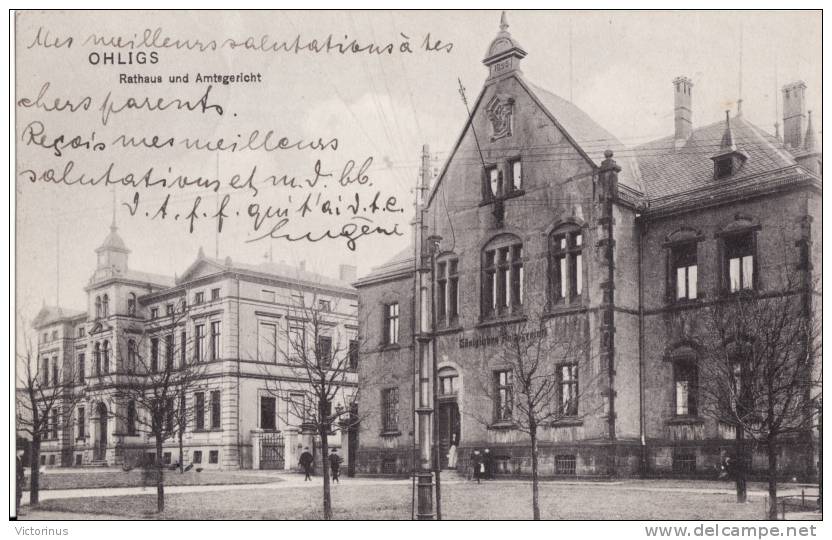 Mes meilleurs salutations à tes
OHLIGS
Rathaus und Amtsgericht
chers parents.
Reçois mes meilleurs
salutations et m.d. bb.
d.t.f.f. qui t'ai d.t.c.
Eugène
1895
Königliches Amtsgericht
Victorinus
delcampe.net